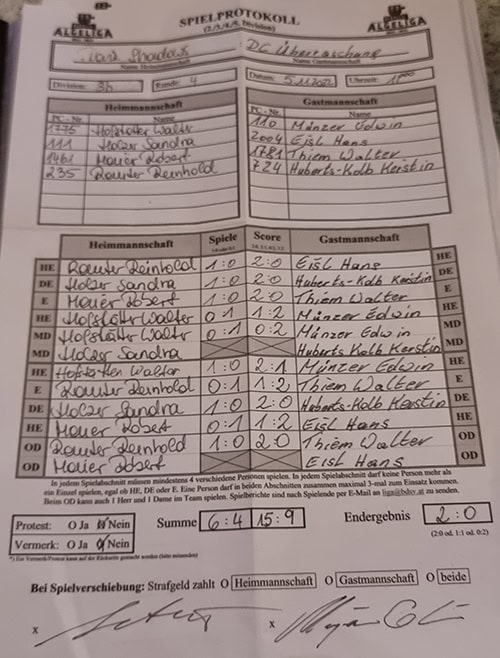 ALGELIGA SPIELPROTOKOLL ALGELIGA
(2./3./4./5. Division)
Shadows DC Übertaschung
Name Heimmannschaft Name Gastmannschaft
Division: 3b Runde: 4 Datum: 5.11.2022 Uhrzeit:
Heimmannschaft Gastmannschaft
PC - Nr. Name PC - Nr. Name
1775 Hofstötter Walter 110 Münzer Edwin
111 Holzer Sandra 2004 Eisl Hans
1461 Mauer Robert 1781 Thiem Walter
235 Rauter Reinhold 724 Huberts-Kolb Kerstin
Heimmannschaft Spiele Score Gastmannschaft
HE Rauter Reinhold 1:0 2:0 Eisl Hans HE
DE Holzer Sandra 1:0 2:0 Huberts-Kolb Kerstin DE
E Mauer Robert 1:0 2:0 Thiem Walter E
HE Hofstötter Walter 0:1 1:2 Münzer Edwin HE
MD Hofstötter Walter 0:1 0:2 Münzer Edwin MD
MD Holzer Sandra Huberts Kolb Kerstin MD
HE Hofstötter Walter 1:0 2:1 Münzer Edwin HE
E Rauter Reinhold 0:1 1:2 Thiem Walter E
DE Holzer Sandra 1:0 2:0 Huberts-Kolb Kerstin DE
HE Mauer Robert 0:1 1:2 Eisl Hans HE
OD Rauter Reinhold 1:0 2:0 Thiem Walter OD
OD Mauer Robert Eisl Hans OD
In jedem Spielabschnitt müssen mindestens 4 verschiedene Personen spielen. In jedem Spielabschnitt darf keine Person mehr als
ein Einzel spielen, egal ob HE, DE oder E. Eine Person darf in beiden Abschnitten zusammen maximal 3-mal zum Einsatz kommen.
Beim OD kann auch 1 Herr und 1 Dame im Team spielen. Spielberichte sind nach Spielende per E-Mail an liga@bdsv.at zu senden.
Protest: O Ja O Nein Summe 6:4 15:9 Endergebnis 2:0
Vermerk: O Ja O Nein (2:0 od. 1:1 od. 0:2)
*) Ein Vermerk/Protest kann auf der Rückseite gemacht werden (bitte ankreuzen)
Bei Spielverschiebung: Strafgeld zahlt O Heimmannschaft O Gastmannschaft O beide
x x